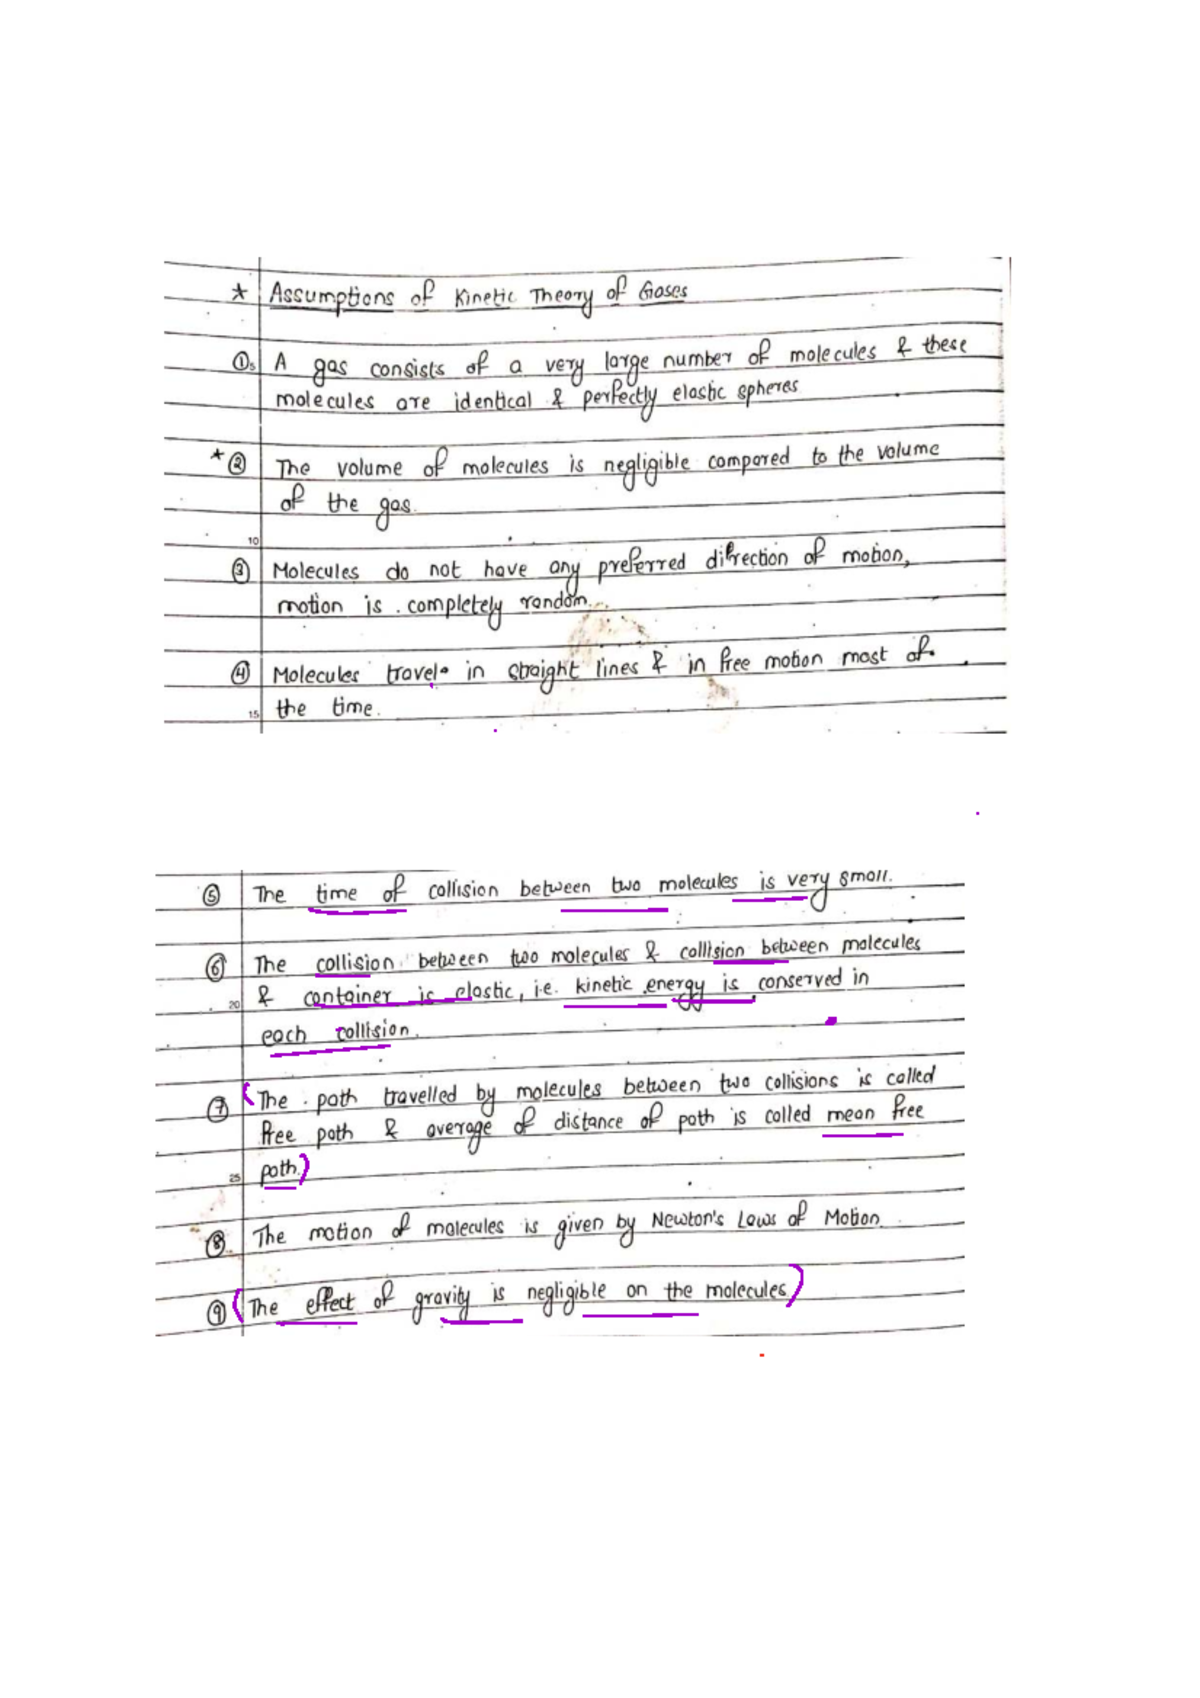 * Assumptions of Kinetic Theory of Gases
① A gas consists of a very large number of molecules & these
molecules are identical & perfectly elastic spheres
* ② The volume of molecules is negligible compared to the volume
of the gas.
10
③ Molecules do not have any preferred direction of motion,
motion is completely random.
④ Molecules travel in straight lines & in free motion most of
15 the time.
⑤ The time of collision between two molecules is very small.
⑥ The collision between two molecules & collision between molecules
20 & container is elastic, i.e. kinetic energy is conserved in
each collision.
⑦ (The path travelled by molecules between two collisions is called
free path & average of distance of path is called mean free
25 path.)
⑧ The motion of molecules is given by Newton's Laws of Motion.
⑨ (The effect of gravity is negligible on the molecules)